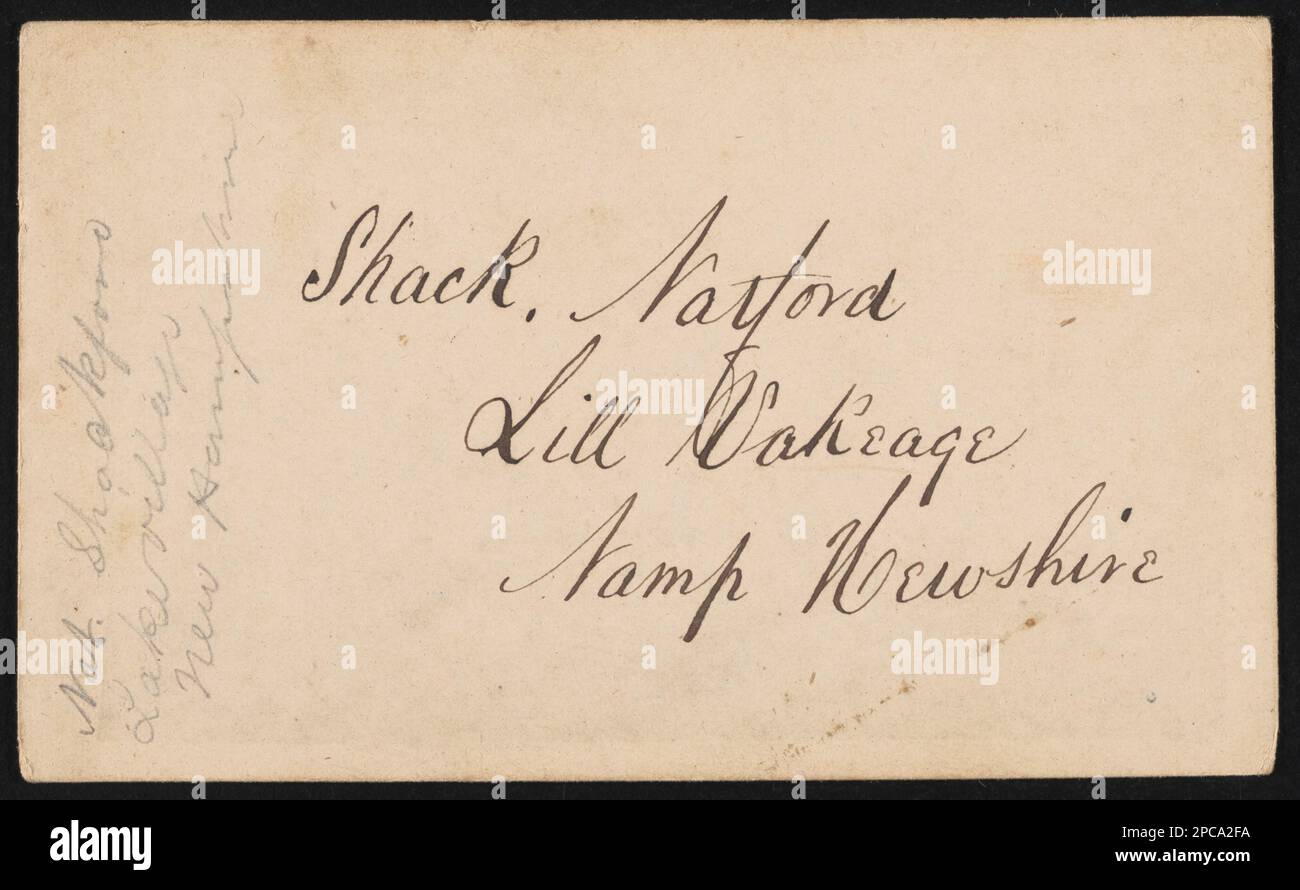 Shack. Natford
Lill Vakeage
Namp Hewshire
Nat. Shackford
Lakevillage
New Hampshire
a alamy
alamy
Image ID: 2PCA2FA
www.alamy.com